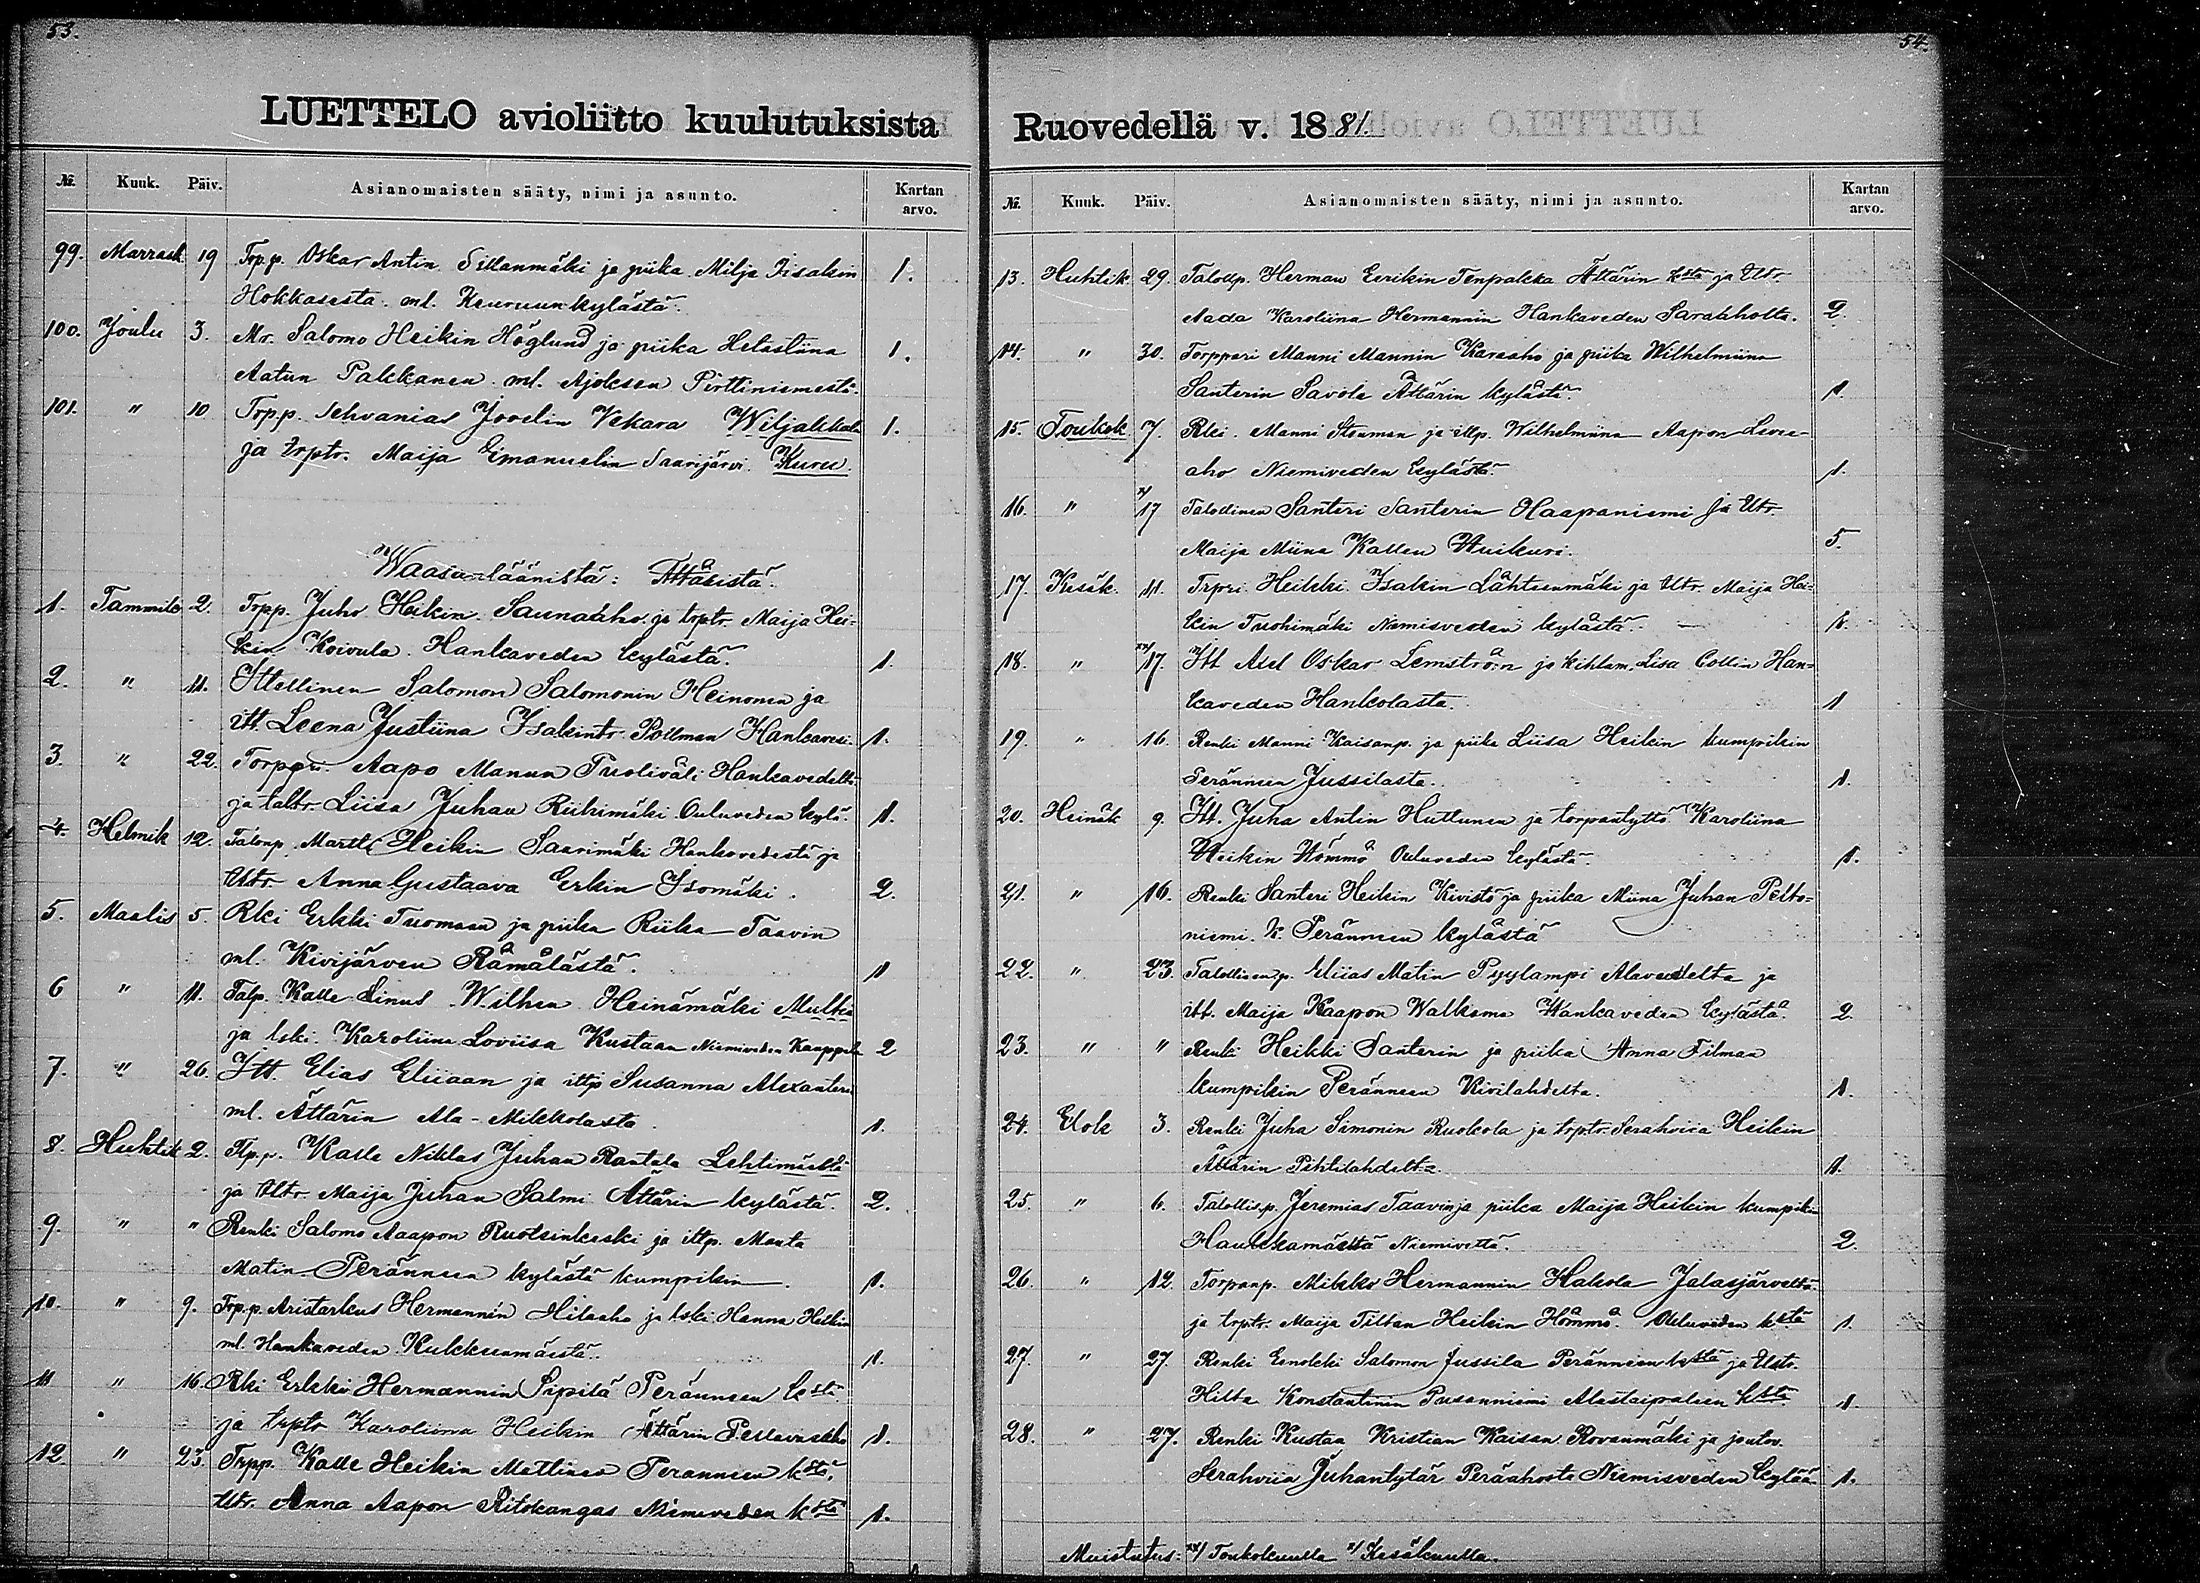 53.
LUETTELO avioliitto kuulutuksista
№. Kuuk. Päiv. Asianomaisten sääty, nimi ja asunto. Kartan arvo.
99. Marrask 19 Trp.p. Oskar Antin Sillanmäki ja piika Milja Iisakin 1.
Hokkasesta ml. Keuruun kylästä.
100. Joulu 3. Mr. Salomo Heikin Höglund ja piika Hetastiina 1.
Aatun Pakkanen ml. Ajoksen Pirttiniemestä.
101. " 10 Trp.p. Sehvanias Joonelin Vekara Wiljakkala 1.
ja trptr. Maija Emanuelin Saarijärvi Kuru
Waasan läänistä: Ättäristä.
1. Tammik 2. Trpp. Juho Heikin Saunaaho ja trptr. Maija Hei-
kin Koivula. Hankaveden kylästä. 1.
2. " 11. Ittellinen Salomon Salomonin Heinonen ja
itt. Leena Justiina Isakintr. Pollman Hankavesi. 1.
3. " 22. Torppr. Aapo Manun Tuoliväli Hankavedeltä
ja taltr. Liisa Juhan Riihimäki Ouluveden kylä. 1.
4. Helmik 12. Talonp. Martti Heikin Saarimäki Hankavedestä ja
tltr. Anna Gustaava Erkin Isomäki. 2.
5. Maalis 5. Rki Erkki Tuomaan ja piika Riika Taavin
ml. Kivijärven Rämälästä. 1
6 " 11. Talp. Kalle Linus Wilhen Heinämäki Multia
ja lski. Karoliina Loviisa Kustaan Niemiveden Kauppila 2
7. " 26. Itt. Elias Eliiaan ja ittp Susanna Alexanterin
ml. Ättärin Ala-Mikkolasta 1.
8. Huhtik 2. Tlp.p. Kalle Niklas Juhan Rantala Lehtimäeltä
ja tltr. Maija Juhan Salmi Ättärin kylästä. 2.
9. " " Renki Salomo Aapon Ruotsinkoski ja ittp. Manta
Matin Peränneen kylästä kumpikin. 1.
10. " 9. Trp.p. Aristarkus Hermannin Hitaaho ja lski Hanna Heikin
ml. Hankaveden Kulkkuunmäestä. 1.
11 " 16. Rki Erkki Hermannin Sipilä Peränneen kstä
ja trptr Karoliina Heikin Ättärin Pellavuaaho 1.
12. " 23. Trpp. Kalle Heikin Mettinen Peränneen kstä,
tltr. Anna Aapon Ritokangas Niemiveden kstä 1.
54.
Ruovedellä v. 1881.
№. Kuuk. Päiv. Asianomaisten sääty, nimi ja asunto. Kartan arvo.
13. Huhtik 29. Talollp. Herman Eerikin Tenpakka Ättärin kstä ja tltr.
Aada Karoliina Hermannin Hankaveden Saraaholta. 2.
14. " 30. Torppari Manni Mannin Karaaho ja piika Wilhelmiina
Santerin Savola Ättärin kylästä. 1.
15. Toukok 7. Rki. Manni Stenman ja ittp. Wilhelmiina Aapon Leve-
aho Niemiveden kylästä. 1.
16. " x/ 17 Talollinen Santeri Santerin Haapaniemi ja tltr.
Maija Miina Kallen Huikuri. 5.
17. Kesäk. 11. Trpri. Heikki Isakin Lähteenmäki ja tltr. Maija Hei-
kin Tuohimäki Niemisveden kylästä. 1.
18. " xx/ 17. Itt Axel Oskar Lemström ja kihlam. Lisa Collin Han-
kaveden Hankolasta. 1
19. " 16. Renki Manni Kaisanp. ja piika Liisa Heikin kumpikin
Peränneen Jussilasta. 1.
20. Heinäk 9. Itt. Juha Antin Huttunen ja torpantyttö Karoliina
Heikin Hömmö Ouluveden kylästä. 1.
21. " 16. Renki Santeri Heikin Kivistö ja piika Miina Juhan Pelto-
niemi. k. Peränneen kylästä
22. " 23. Talollisenp. Eliias Matin Pyylampi Alavedelta ja
itt. Maija Kaapon Walkama Hankaveden kylästä. 2
23. " " Renki Heikki Santerin ja piika Anna Tilman
kumpikin Peränneen Kivilahdelta. 1.
24. Elok 3. Renki Juha Simonin Ruokola ja trptr. Serahviia Heikin
Ättärin Pihtilahdelta. 1.
25. " 6. Talollis.p. Jeremias Taavin ja piika Maija Heikin kumpikin
Haukkamäeltä Niemivettä. 2.
26. " 12. Torpanp. Mikko Hermannin Hakola Jalasjärveltä
ja trptr. Maija Tildan Heikin Hömmö. Ouluveden kstä 1.
27. " 27. Renki Eenokki Salomon Jussila Peränneen kstä ja tltr.
Hilta Konstantinin Pusanniemi Alastaipaleen kstä 1.
28. " 27. Renki Kustaa Kristian Kaisan Rovanmäki ja joutov.
Serahviia Juhantytär Peräahosta Niemisveden kylää. 1.
Muistutus: xx/ Toukokuulla x/ Kesäkuulla.